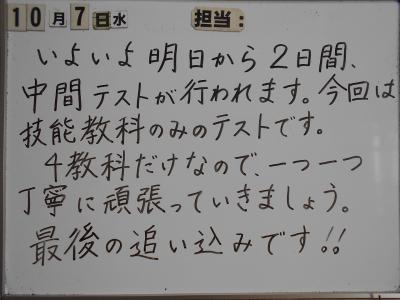 10月7日水 担当:
いよいよ明日から2日間、
中間テストが行われます。今回は
技能教科のみのテストです。
4教科だけなので、一つ一つ
丁寧に頑張っていきましょう。
最後の追い込みです!!